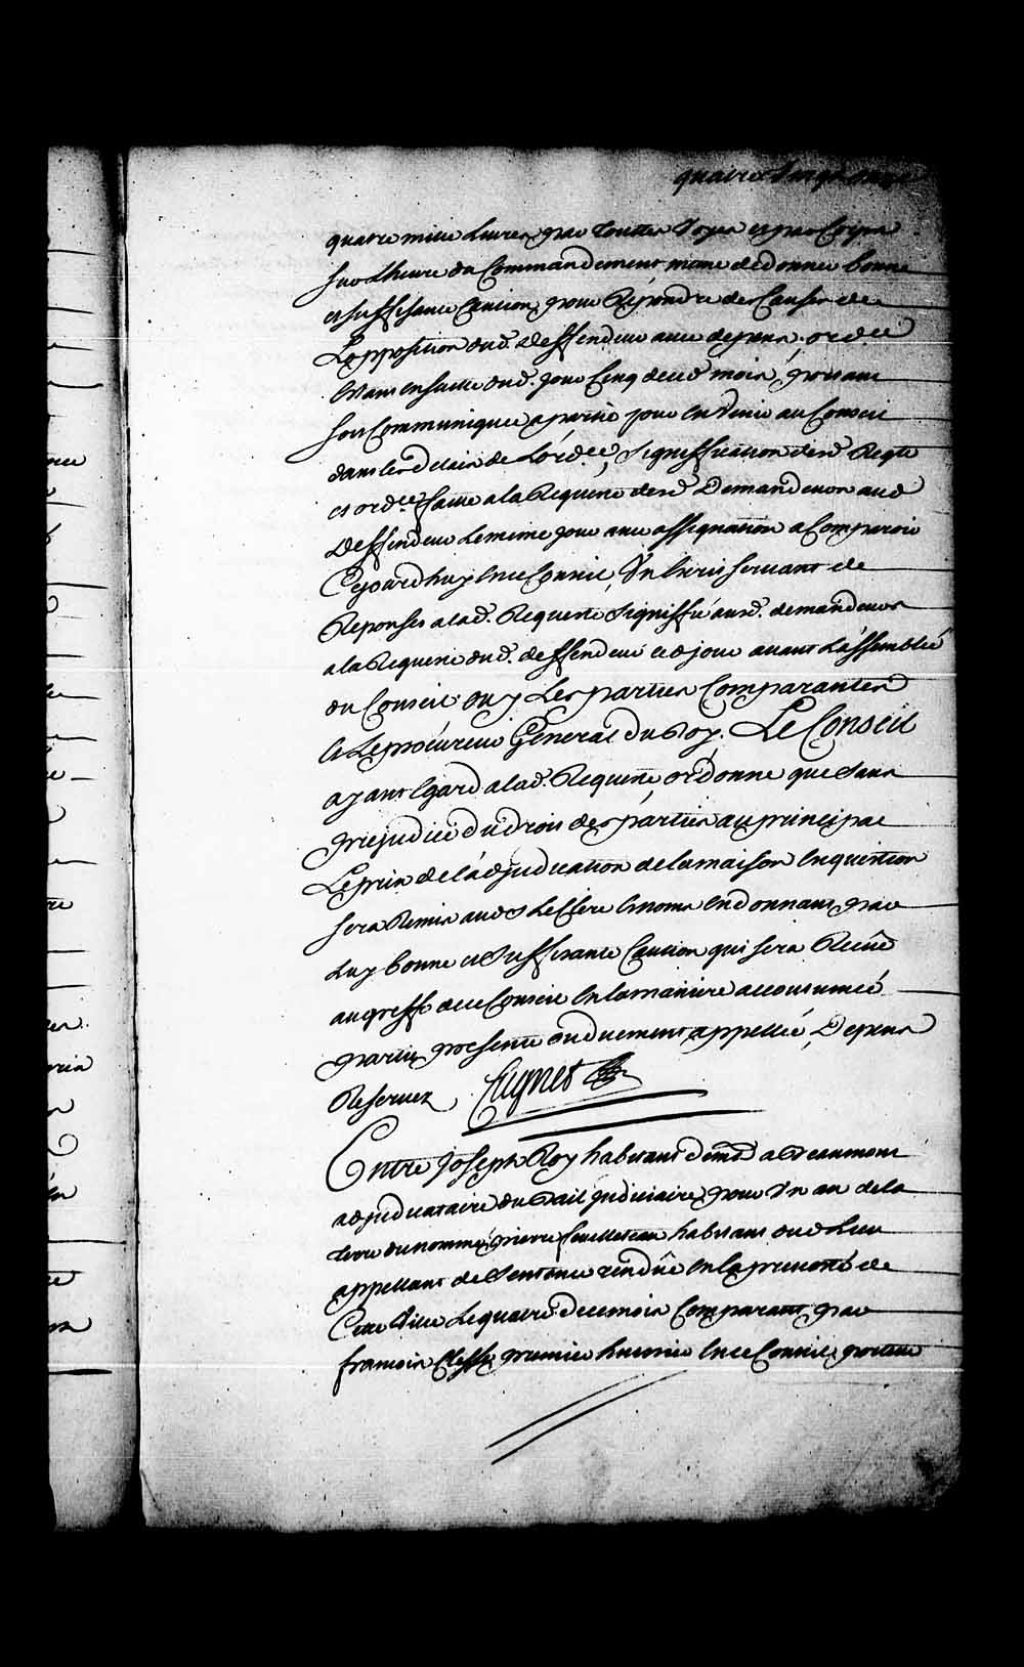 quatre vingt onze
quatre mille Livres par touttes Voyes et par Corps
sur Lheure du Commandement mieux de donner bonne
et suffisante Caution pour Répondre des Causes de
Lopposition dud. deffendeur avec depens. ordce
Etant ensuitte dud. jour Cinq de ce mois, portant
soit Communiquée a partie pour en Venir au Conseil
dans les delais de L'ordce, Signiffication desd. Reqte
et ordce faitte a la Requeste desd. Demandeurs aud.
Deffendeur Le meme jour avec assignation a Comparoir
Cejourdhuy en ce Conseil, Un Ecrit servant de
Reponses a lad. Requeste Signiffié ausd. demandeurs
a la Requeste dud. deffendeur ced. jour avant L'assemblée
du Conseil. ouy Les parties Comparantes
et Le procureur General du Roy. Le Conseil
ayant Egard a lad. Requeste, ordonne que Sans
prejudice du droit des parties au principal
Le prix de L'adjudication de la maison en question
sera Remis aud. LeClerc Es noms En donnant par
Luy bonne et Suffisante Caution qui sera Recüe
au greffe de ce Conseil En la maniere accoutumée
partie presente ou duement appellée, Depens
Reservez Cugnet
Entre Joseph Roy habitant demt. a Beaumont
adjudicataire du Bail judiciaire pour Un an de la
terre du nommé pierre feuilleteau habitant dud. Lieu
appellant de Sentence rendüe En la prevosté de
Cette Ville Le quatre de ce mois Comparant par
francois Clesse premier huissier en ce Conseil porteur